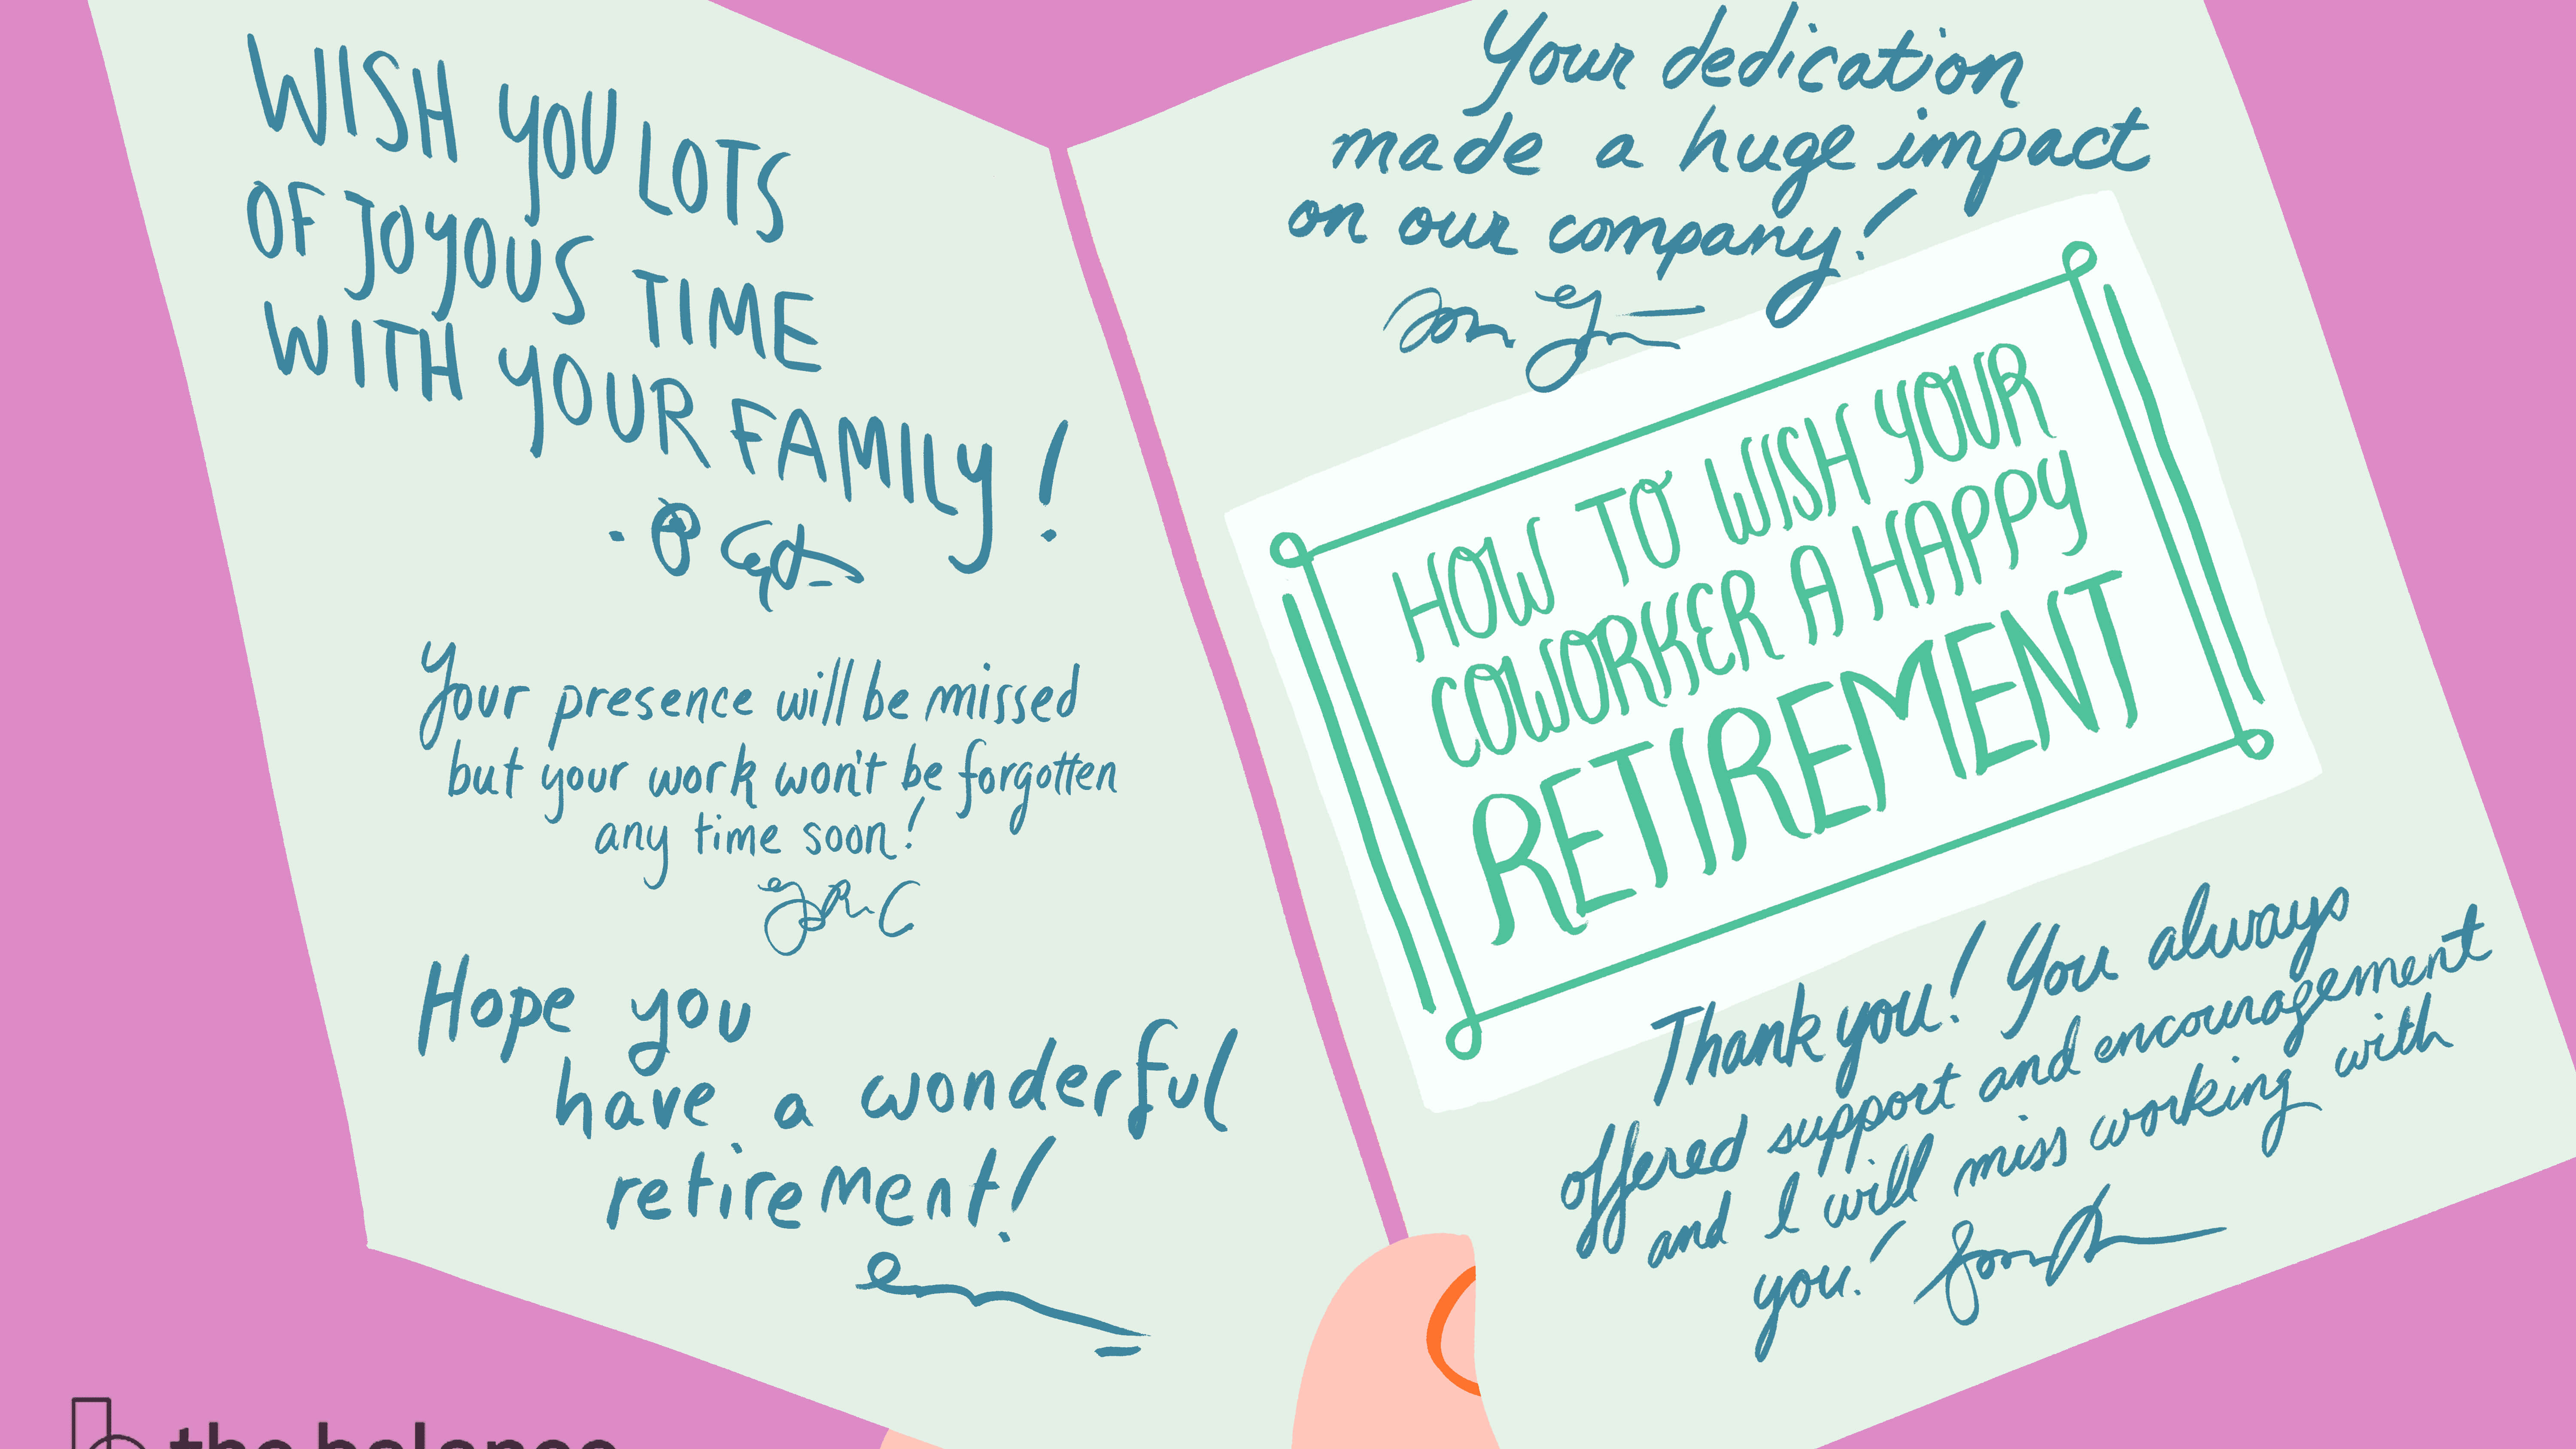 WISH YOU LOTS
OF JOYOUS TIME
WITH YOUR FAMILY!
Your presence will be missed
but your work won't be forgotten
any time soon!
Hope you
have a wonderful
retirement!
Your dedication
made a huge impact
on our company!
HOW TO WISH YOUR
COWORKER A HAPPY
RETIREMENT
Thank you! You always
offered support and encouragement
and I will miss working with
you!
the balance